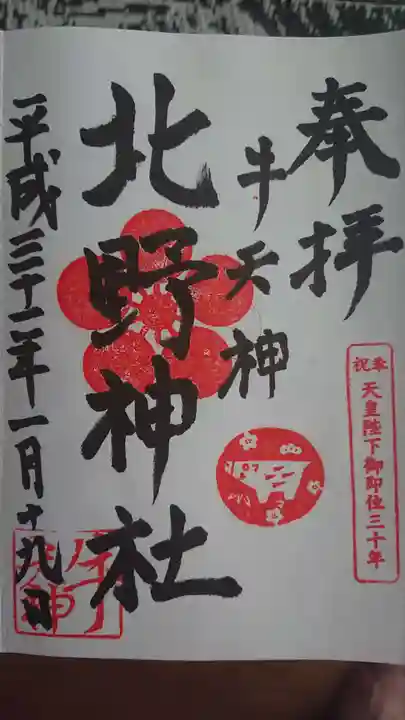 奉拝
奉祝 天皇陛下御即位三十年
牛天神
北野神社
平成三十一年一月十九日